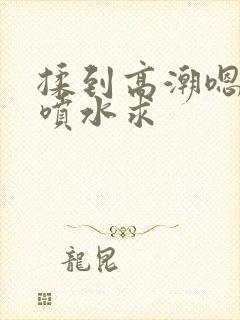 揉到高潮嗯
噴水求
龍昆